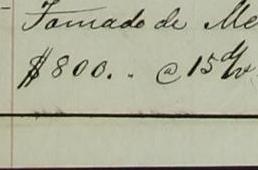 Tomado de Me
$800.. @ 15 d/v